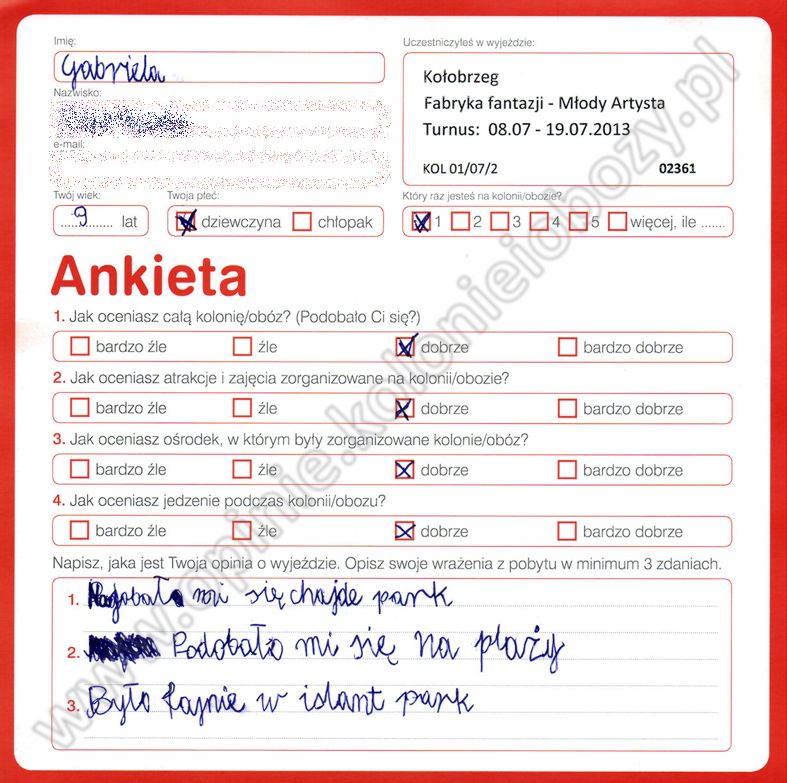 Imię:
Uczestniczyłeś w wyjeździe:
Gabriela
Kołobrzeg
Nazwisko:
Fabryka fantazji - Młody Artysta
Turnus: 08.07 - 19.07.2013
e-mail:
KOL 01/07/2 02361
Twój wiek: Twoja płeć: Który raz jesteś na kolonii/obozie?
9 lat dziewczyna chłopak 1 2 3 4 5 więcej, ile .......
Ankieta
1. Jak oceniasz całą kolonię/obóz? (Podobało Ci się?)
bardzo źle źle dobrze bardzo dobrze
2. Jak oceniasz atrakcje i zajęcia zorganizowane na kolonii/obozie?
bardzo źle źle dobrze bardzo dobrze
3. Jak oceniasz ośrodek, w którym były zorganizowane kolonie/obóz?
bardzo źle źle dobrze bardzo dobrze
4. Jak oceniasz jedzenie podczas kolonii/obozu?
bardzo źle źle dobrze bardzo dobrze
Napisz, jaka jest Twoja opinia o wyjeździe. Opisz swoje wrażenia z pobytu w minimum 3 zdaniach.
1. mi się chajde park
2. Podobało mi się na plaży
3. Było fajnie w islant park
www.opinie.kolonieiobozy.pl